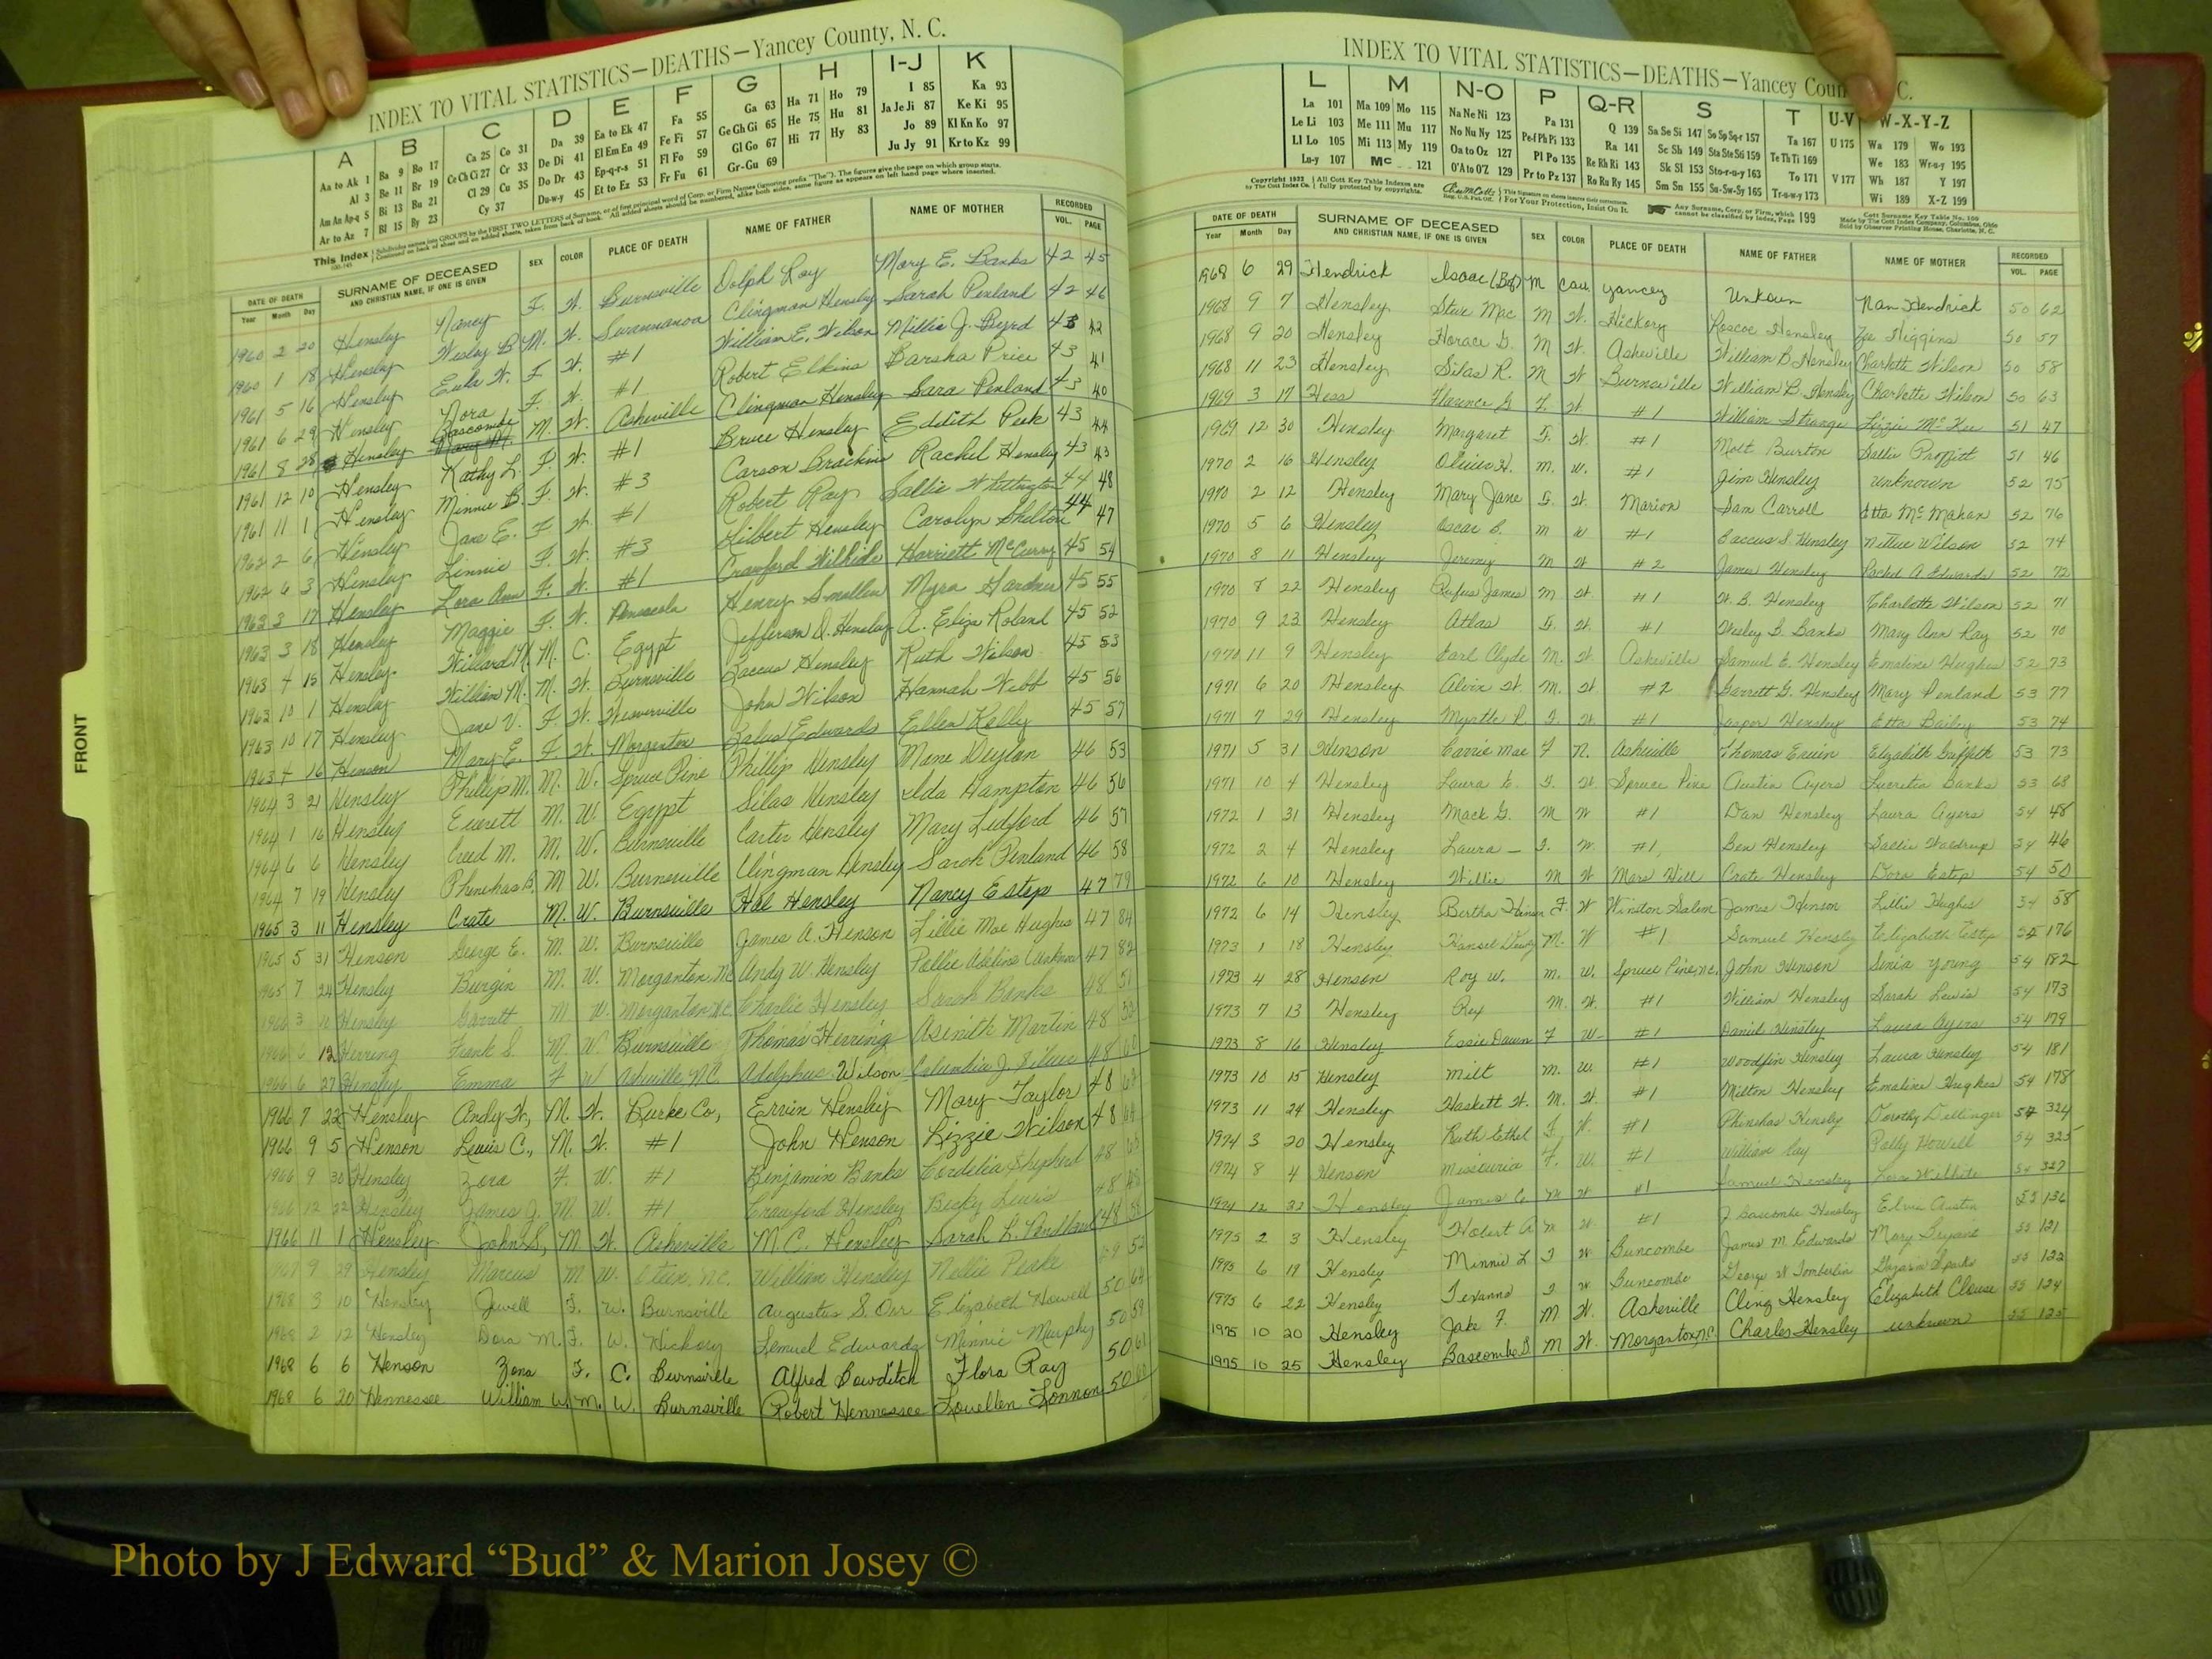 INDEX TO VITAL STATISTICS—DEATHS—Yancey County, N. C.
A B C D E F G H I-J K
Aa to Ak 1 Ba 9 Bo 17 Ca 25 Co 31 Da 39 Ea to Ek 47 Fa 55 Ga 63 Ha 71 Ho 79 I 85 Ka 93
Al 3 Be 11 Br 19 Ce Ch Ci 27 Cr 33 De Di 41 El Em En 49 Fe Fi 57 Ge Gh Gi 65 He 75 Hu 81 Ja Je Ji 87 Ke Ki 95
Am An Ap-q 5 Bi 13 Bu 21 Cl 29 Cu 35 Do Dr 43 Ep-q-r-s 51 Fl Fo 59 Gl Go 67 Hi 77 Hy 83 Jo 89 Kl Kn Ko 97
Ar to Az 7 Bl 15 By 23 Cy 37 Du-w-y 45 Et to Ez 53 Fr Fu 61 Gr-Gu 69 Ju Jy 91 Kr to Kz 99
DATE OF DEATH Year Month Day SURNAME OF DECEASED AND CHRISTIAN NAME, IF ONE IS GIVEN SEX COLOR PLACE OF DEATH NAME OF FATHER NAME OF MOTHER RECORDED VOL. PAGE
1960 2 20 Hensley Nancy F. W. Burnsville Dolph Ray Mary E. Banks 42 45
1960 1 18 Hensley Wesley B. M. W. Swannanoa Clingman Hensley Sarah Penland 42 46
1961 5 16 Hensley W. F. W. #1 William E. Wilson Millie J. Byrd 43 42
1961 6 29 Hensley Nora F. W. #1 Robert Elkins Barsha Price 43 41
1961 8 28 Hensley Bascombe M. W. Asheville Clingman Hensley Sara Penland 43 40
1961 12 10 Hensley Kathy L. F. W. #1 Bruce Hensley Eddith Peek 43 44
1961 11 1 Hensley Minnie B. F. W. #3 Carson Brackins Rachel Hensley 43 43
1962 2 6 Hensley Jane E. F W. #1 Robert Ray Sallie Whittington 44 48
1962 6 3 Hensley Linnie F. W. #3 Gilbert Hensley Carolyn Shelton 44 47
1963 3 17 Hensley Lora Ann F. W. #1 Crawford Wilhide Harriett McCurry 45 54
1963 3 18 Hensley Maggie F. W. Pensacola Henry Smallen Myra Gardner 45 55
1963 4 15 Hensley Willard M. M. C. Egypt Jefferson D. Hensley A. Eliza Roland 45 52
1963 10 1 Hensley William M. M. W. Burnsville Zaccus Hensley Ruth Wilson 45 53
1963 10 17 Hensley Jane V. F. W. Weaverville John Wilson Hannah Webb 45 56
1963 4 16 Henson Mary E. F. W. Morganton Edwards Ellen Kelly 45 57
1964 3 21 Hensley Phillip M. M. W. Spruce Pine Phillip Hensley Mane Deyton 46 53
1964 1 16 Hensley Everett M. W. Egypt Silas Hensley Ida Hampton 46 56
1964 6 6 Hensley Creed M. M. W. Burnsville Carter Hensley Mary Ledford 46 57
1964 7 19 Hensley Phinehas B. M W. Burnsville Clingman Hensley Sarah Penland 46 58
1965 3 11 Hensley Crate M. W. Burnsville Hal Hensley Nancy Estep 47 79
1965 5 31 Henson George E. M. W. Burnsville James A. Henson Lillie Mae Hughes 47 84
1965 7 24 Hensley Burgin M. W. Morganton, NC Andy W. Hensley Pollie Adeline 47 82
1966 3 Hensley Garrett M W. Morganton N.C. Charlie Hensley Sarah Banks 48 51
1966 6 12 Herring Frank S. M. W. Burnsville Thomas Herring Asenith Martin 48
1966 6 27 Hensley Emma F W Asheville, N.C. Adolphus Wilson Columbia J. Silver 48 60
1966 7 22 Hensley Andy W., M. W. Burke Co, Ervin Hensley Mary Taylor 48
1966 9 5 Henson Lewis C., M. W. #1 John Henson Lizzie Wilson 48
1966 9 30 Hensley Zora F. W. #1 Benjamin Banks Cordelia Shepherd 48
1966 12 22 Hensley James J. M. W. #1 Crawford Hensley Becky Lewis 48
1966 11 1 Hensley John S., M W. Asheville M.C. Hensley Sarah L. 48
9 29 Hensley Marcus M W. N.C. William Hensley Nellie Peake 52
1968 3 10 Hensley Jewell F. W. Burnsville Augustus S. Orr Elizabeth Howell 50 64
1968 2 12 Hensley Dora M. F. W. Hickory Lemuel Edwards Minnie Murphy 50 59
1968 6 6 Henson Zona F. C. Burnsville Alfred Bowditch Flora Ray 50 61
1968 6 20 Hennessee William W. M. W. Burnsville Robert Hennessee Louellen Lonnon 50
FRONT
INDEX TO VITAL STATISTICS—DEATHS—Yancey Coun C.
L M N-O P Q-R S T U-V W-X-Y-Z
La 101 Ma 109 Mo 115 Na Ne Ni 123 Pa 131 Q 139 Sa Se Si 147 So Sp Sq-r 157 Ta 167 U 175 Wa 179 Wo 193
Le Li 103 Me 111 Mu 117 No Nu Ny 125 Pe-f Ph Pi 133 Ra 141 Sc Sh 149 Sta Ste Sti 159 Te Th Ti 169 We 183 Wr-u-y 195
Ll Lo 105 Mi 113 My 119 Oa to Oz 127 Pl Po 135 Re Rh Ri 143 Sk Sl 153 Sto-r-u-y 163 To 171 V 177 Wh 187 Y 197
Lu-y 107 Mc 121 O'A to O'Z 129 Pr to Pz 137 Ro Ru Ry 145 Sm Sn 155 Su-Sw-Sy 165 Tr-u-w-y 173 Wi 189 X-Z 199
DATE OF DEATH Year Month Day SURNAME OF DECEASED AND CHRISTIAN NAME, IF ONE IS GIVEN SEX COLOR PLACE OF DEATH NAME OF FATHER NAME OF MOTHER RECORDED VOL. PAGE
1968 6 29 Hendrick Isaac M Cau. Yancey Unkown Nan Hendrick 50 62
1968 9 7 Hensley Steve Mac M W. Hickory Roscoe Hensley Zoe Higgins 50 57
1968 9 20 Hensley Horace G. M W. Asheville William B. Hensley Charlotte Wilson 50 58
1968 11 23 Hensley Silas R. M W Burnsville William B. Hensley Charlotte Wilson 50 63
1969 3 17 Hess Florence G F. W. #1 William Strange Lizzie McKee 51 47
1969 12 30 Hensley Margaret F. W. #1 Molt Burton Sallie Proffitt 51 46
1970 2 16 Hensley H. M. W. #1 Jim Hensley unknown 52 75
1970 2 12 Hensley Mary Jane F. W. Marion Sam Carroll Etta McMahan 52 76
1970 5 6 Hensley Oscar B. M W #1 Zaccus S. Hensley Nettie Wilson 52 74
1970 8 11 Hensley Jeremy M W #2 James Hensley Rachel A Edwards 52 72
1970 8 22 Hensley Rufus James M W #1 W. B. Hensley Charlotte Wilson 52 71
1970 9 23 Hensley Atlas F. W. #1 Wesley B. Banks Mary Ann Ray 52 70
1970 11 9 Hensley Earl Clyde M. W. Asheville Samuel E. Hensley Emaline Hughes 52 73
1971 6 20 Hensley Alvin W. M. W. #2 Garrett G. Hensley Mary Penland 53 77
1971 7 29 Hensley Myrtle P. F. W. #1 Jasper Hensley Etta Bailey 53 74
1971 5 31 Henson Carrie Mae F N. Asheville Thomas Ervin Elizabeth Griffith 53 73
1971 10 4 Hensley Laura E. F. W. Spruce Pine Austin Ayers Lucretia Banks 53 68
1972 1 31 Hensley Mack G. M W #1 Dan Hensley Laura Ayers 54 48
1972 2 4 Hensley Laura — F. W. #1, Ben Hensley Sallie Waldrup 54 46
1972 6 10 Hensley Willie M W Mars Hill Crate Hensley Dora Estep 54 50
1972 6 14 Hensley Bertha Henson F. W Winston Salem James Henson Lillie Hughes 54 58
1973 1 18 Hensley Hansel M. W #1 Samuel Hensley Elizabeth Estep 54 176
1973 4 28 Henson Roy W. M. W. Spruce Pine, N.C. John Henson Sinia Young 54 182
1973 7 13 Hensley Rex M. W. #1 William Hensley Sarah Lewis 54 173
1973 8 16 Hensley Essie Dawn F W- #1 Daniel Hensley Laura Ayers 54 179
1973 10 15 Hensley Milt M. W. #1 Woodfin Hensley Laura Hensley 54 181
1973 11 24 Hensley Haskett W. M. W. #1 Milton Hensley Emaline Hughes 54 178
1974 3 20 Hensley Ruth Ethel F. W. #1 Phinehas Hensley Dorothy Dellinger 54 324
1974 8 4 Henson Missouria F. W. #1 William Ray Polly Howell 54 325
1974 12 22 Hensley James C. M W #1 Samuel Hensley 54 327
1975 2 3 Hensley Hobert A M W. #1 J. Bascombe Hensley Austin 55 136
1975 6 19 Hensley Minnie L F W Buncombe James M. Edwards Mary Bryant 55 121
1975 6 22 Hensley Texanna F W. Buncombe George W Tomberlin Sparks 55 122
1975 10 20 Hensley Jake F. M W. Asheville Cling Hensley Elizabeth Clouse 55 124
1975 10 25 Hensley Bascombe S M W. Morganton, N.C. Charles Hensley unknown 55 125
Photo by J Edward “Bud” & Marion Josey ©